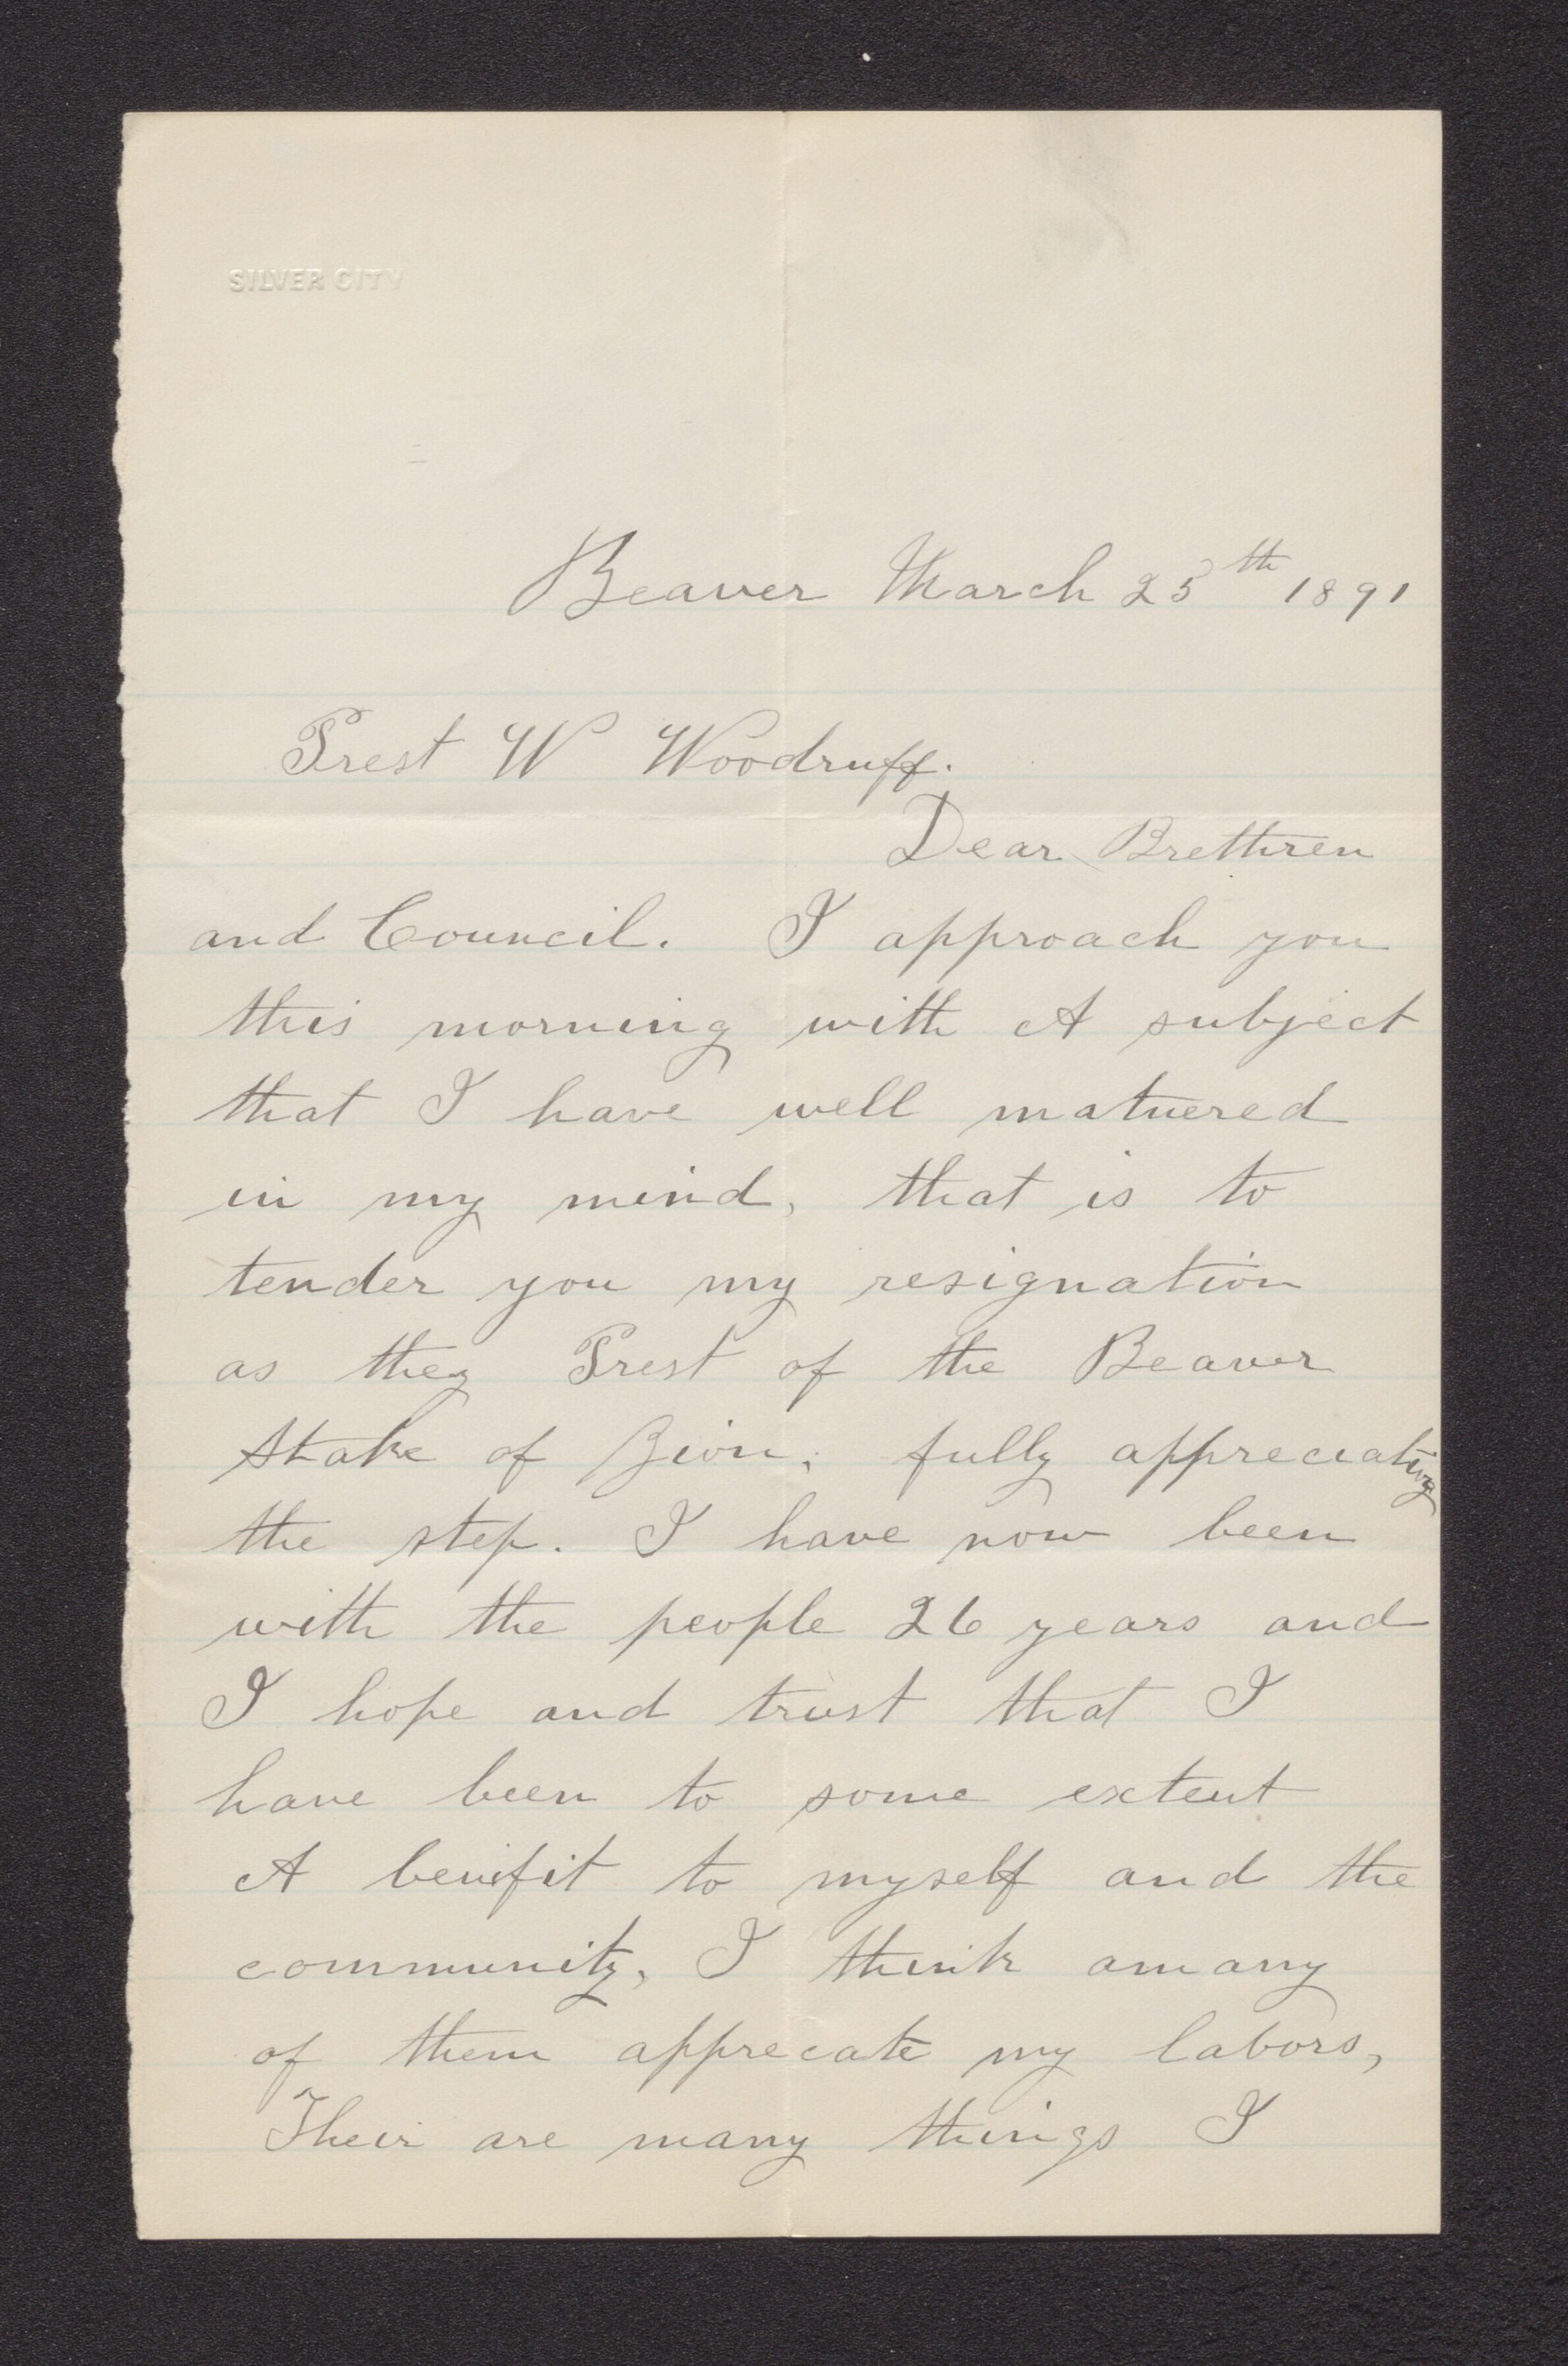 SILVER CITY
Beaver March 25th 1891
Prest W Woodruff.
Dear Brethren
and Council. I approach you
this morning with A subject
that I have well matuered
in my mind, that is to
tender you my resignation
as they Prest of the Beaver
Stake of Zion; fully appreciating
the step. I have now been
with the people 26 years and
I hope and trust that I
have been to some extent
A benifit to myself and the
community, I think amany
of them apprecate my labors,
Their are many things I